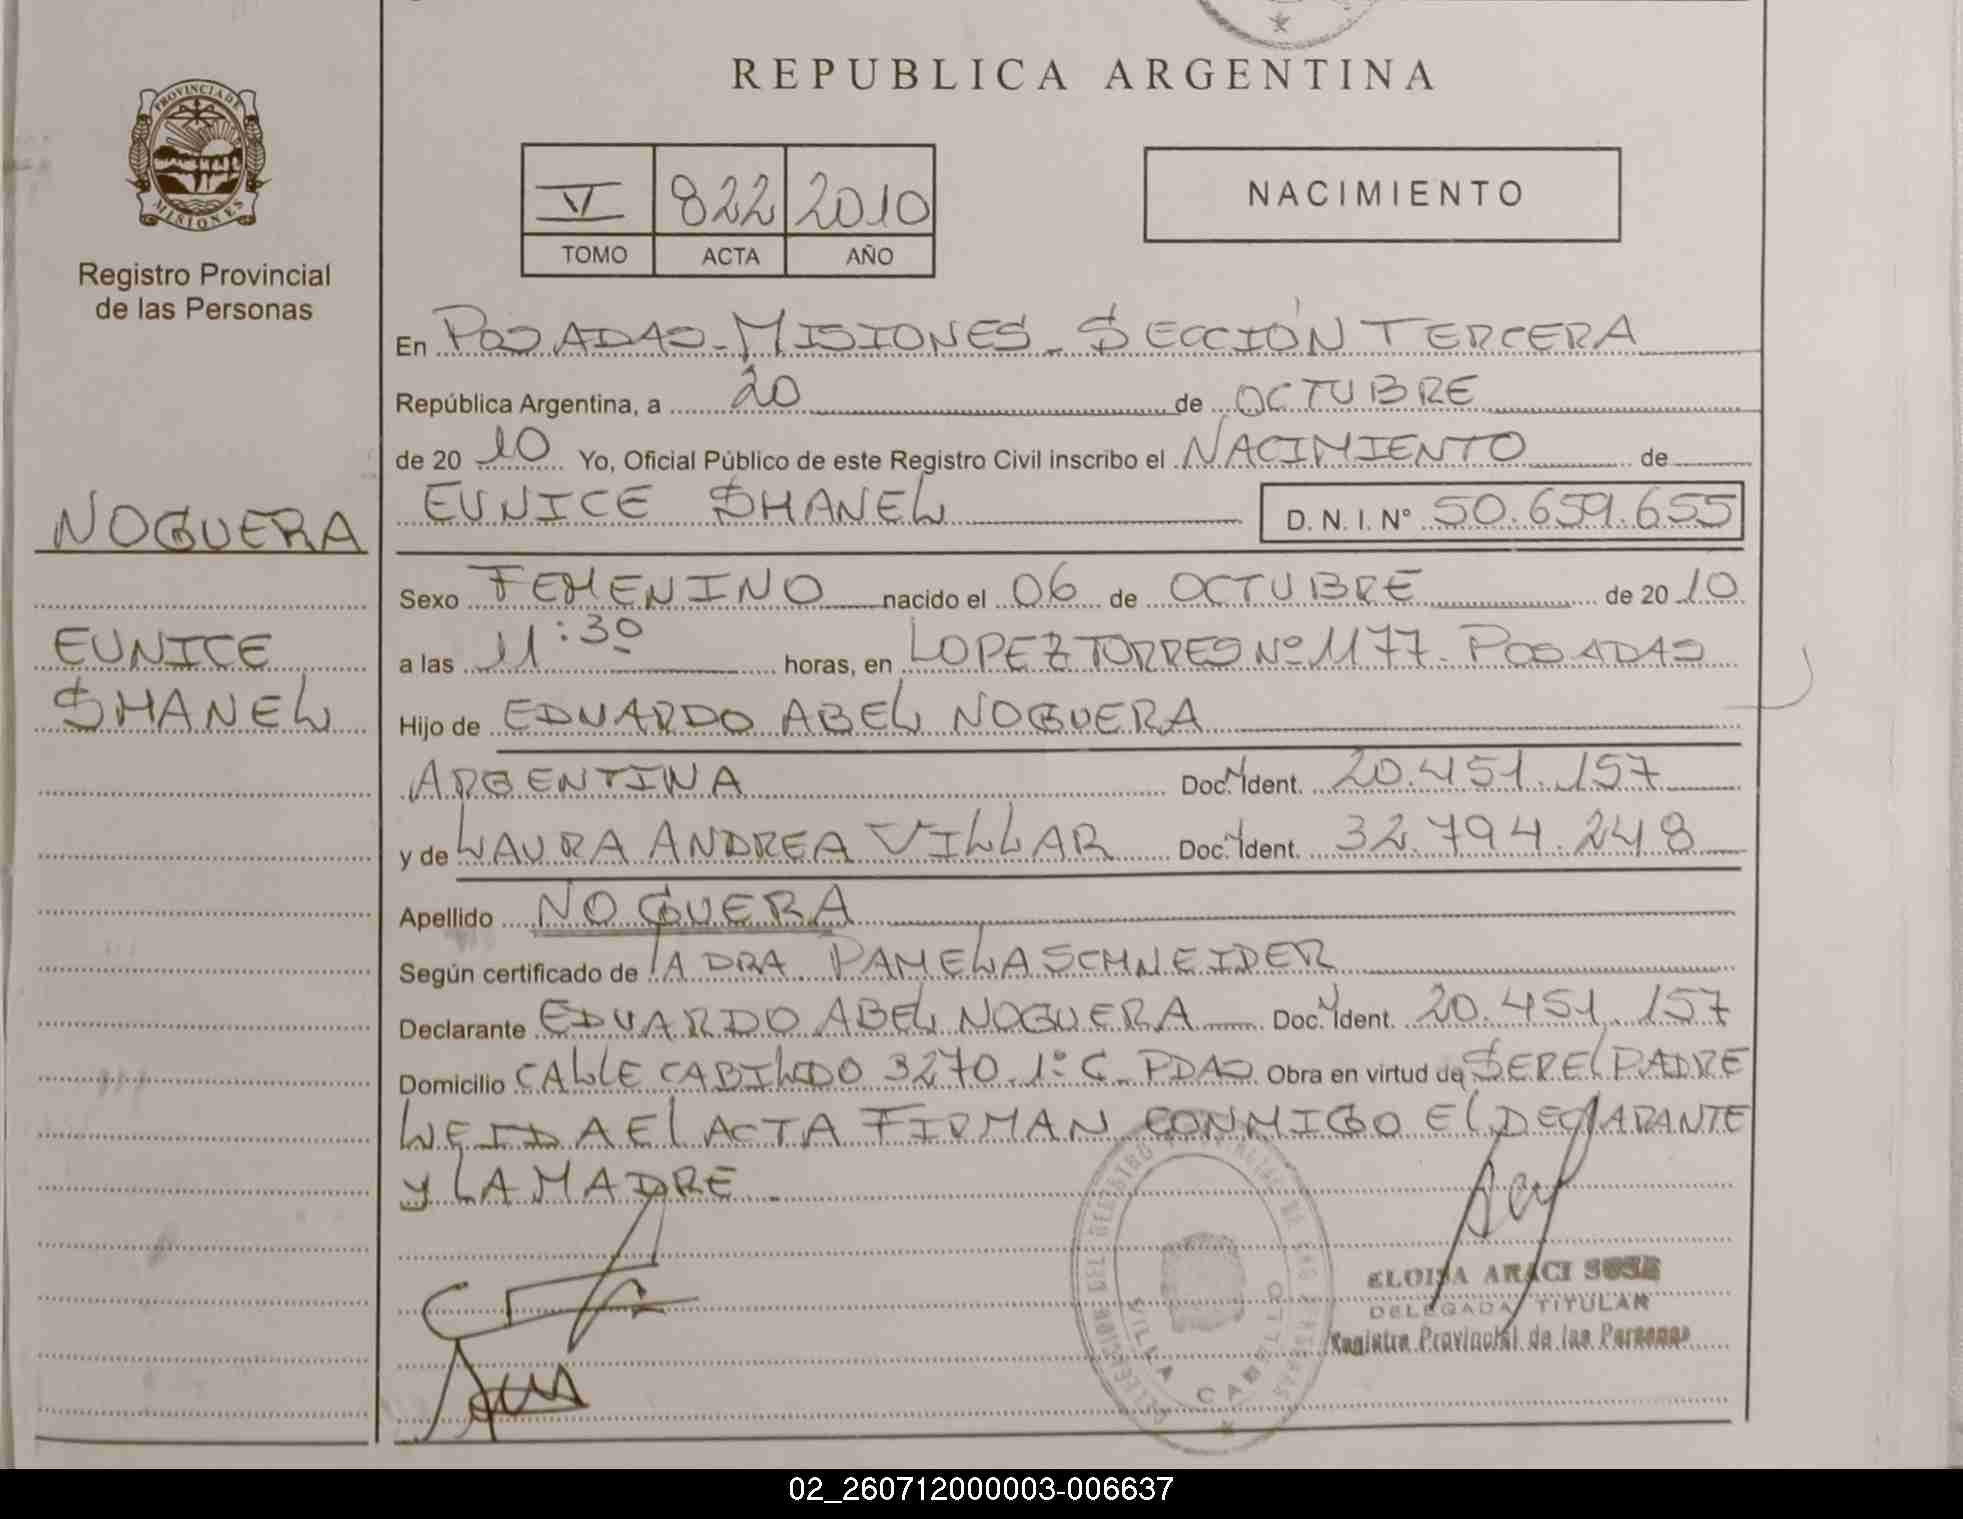 REPUBLICA ARGENTINA
PROVINCIA DE MISIONES
Registro Provincial
de las Personas
VI 822 2010
TOMO ACTA AÑO
NACIMIENTO
En POSADAS - MISIONES - SECCIÓN TERCERA
República Argentina, a 20 de OCTUBRE
de 20 10 Yo, Oficial Público de este Registro Civil inscribo el NACIMIENTO de
EUNICE SHANEL D. N. I. N° 50.659.655
NOGUERA
EUNICE
SHANEL
Sexo FEMENINO nacido el 06 de OCTUBRE de 20 10
a las 11:30 horas, en LOPEZ TORRES Nº 1177. POSADAS
Hijo de EDUARDO ABEL NOGUERA
ARGENTINA Doc. Ident. 20.451.157
y de LAURA ANDREA VILLAR Doc. Ident. 32.794.248
Apellido NOGUERA
Según certificado de LA DRA. PAMELA SCHNEIDER
Declarante EDUARDO ABEL NOGUERA Doc. Ident. 20.451.157
Domicilio CALLE CABILDO 3270 1º C - PDAS Obra en virtud de SER EL PADRE
LEIDA EL ACTA FIRMAN CONMIGO EL DECLARANTE
Y LA MADRE.
VILLA CABELLO
ELOISA ARACI SOSA
DELEGADA TITULAR
Registro Provincial de las Personas
02_260712000003-006637